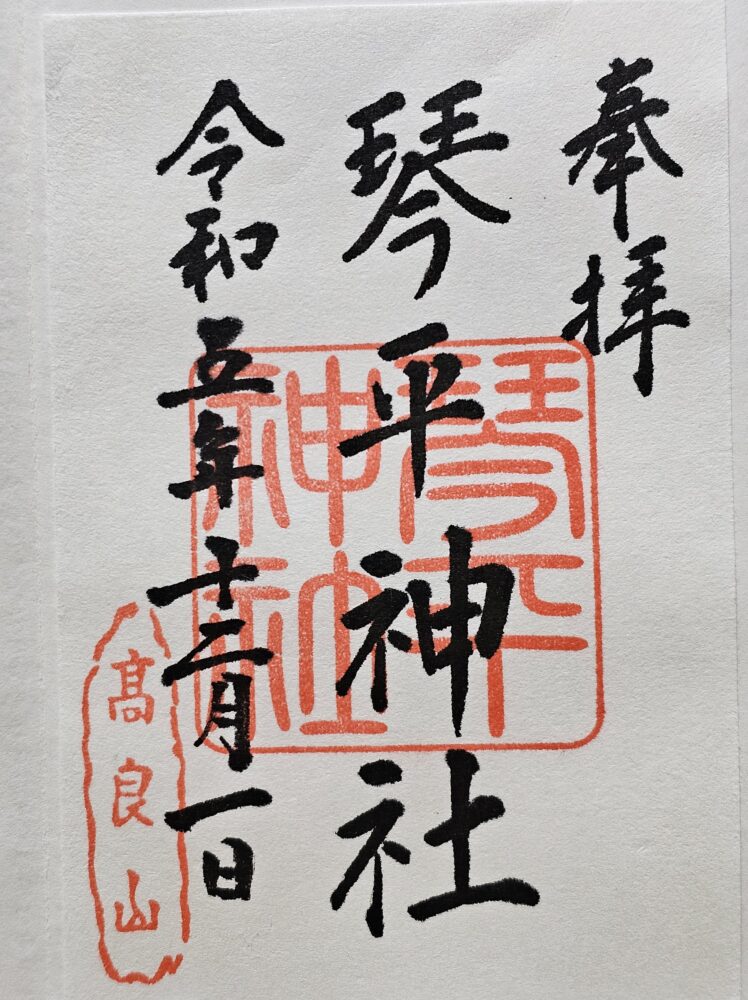 奉拝
琴平神社
琴平
神社
令和五年十二月一日
髙良山